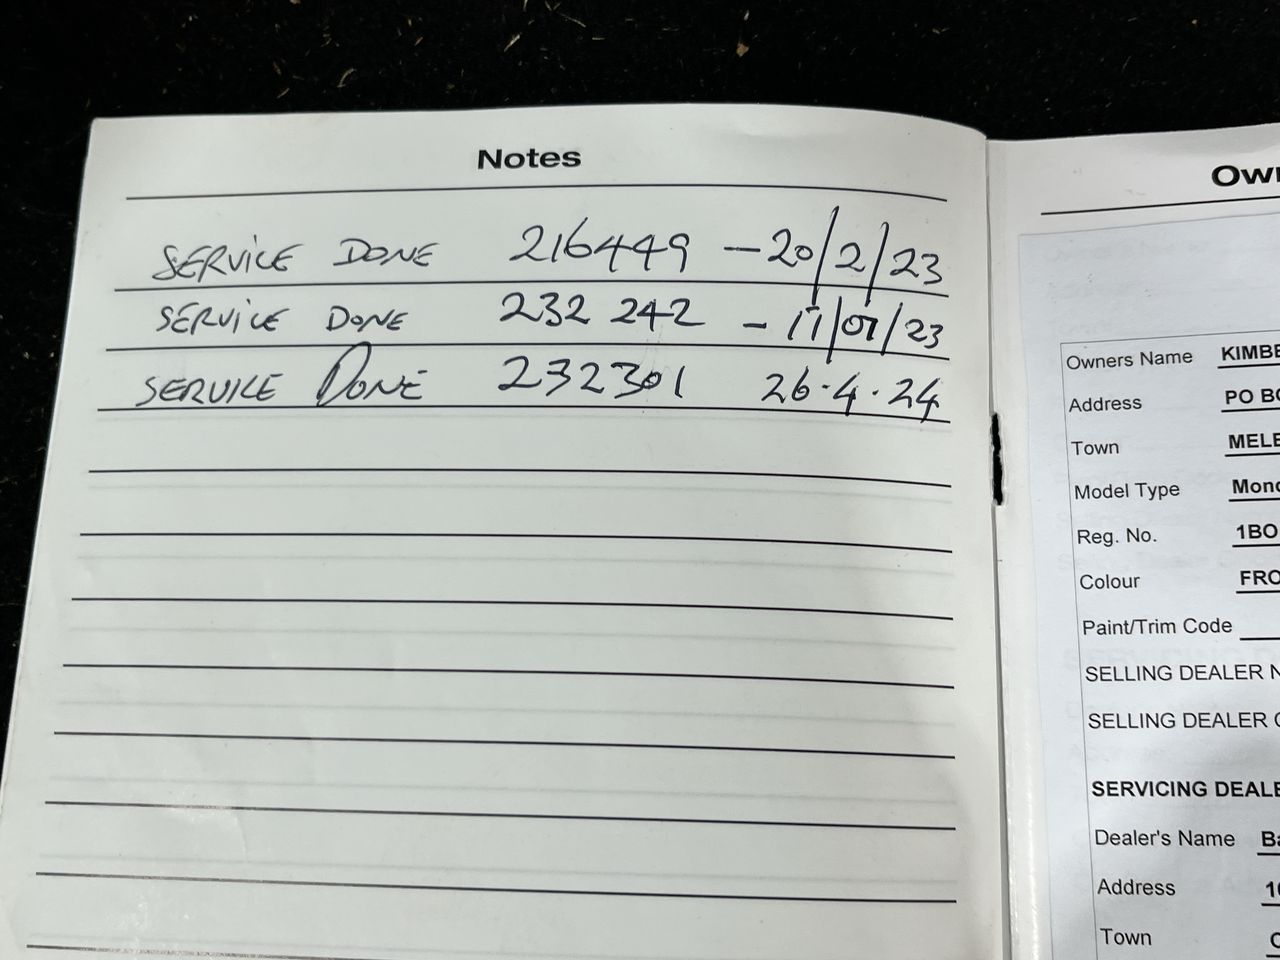 Notes
SERVICE DONE 216449 – 20/2/23
SERVICE DONE 232 242 - 11/07/23
SERVICE DONE 232301 26.4.24
Own
Owners Name KIMBE
Address PO BO
Town MELB
Model Type Mond
Reg. No. 1BO
Colour FRO
Paint/Trim Code
SELLING DEALER N
SELLING DEALER C
SERVICING DEALE
Dealer's Name Ba
Address 10
Town C